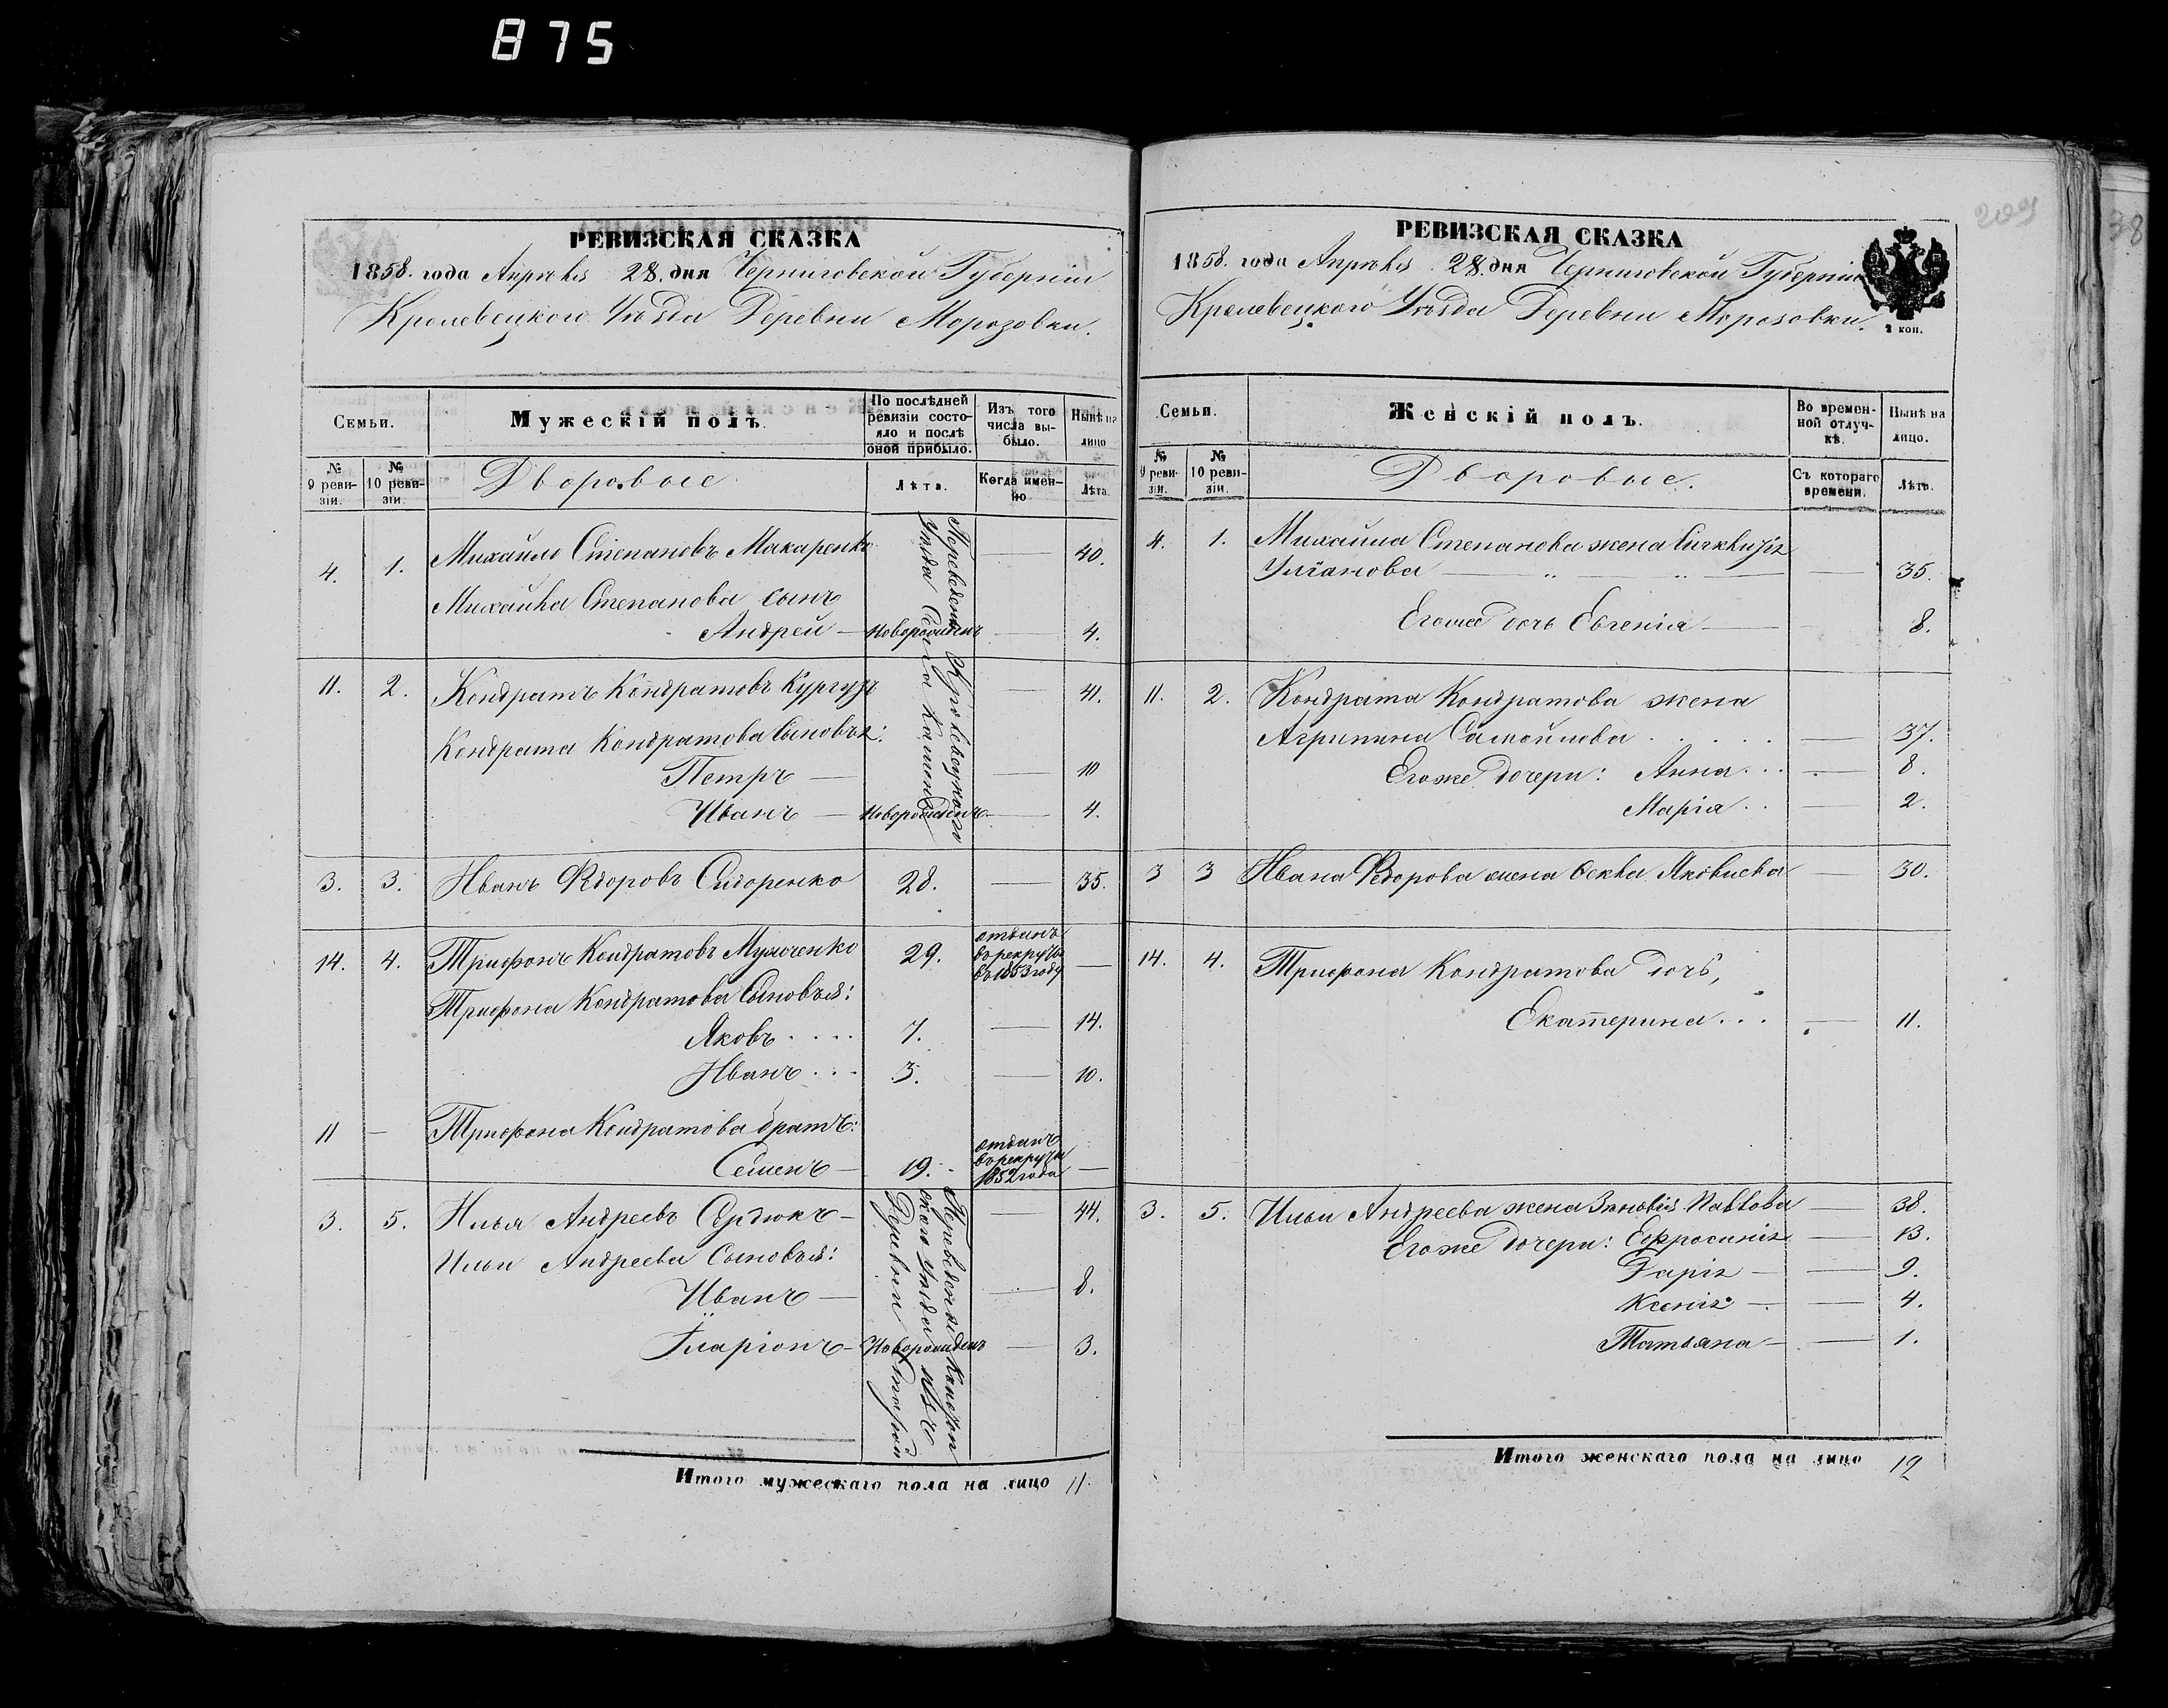 875
РЕВИЗСКАЯ СКАЗКА
1858. года Апрѣля 28. дня Черниговской Губерніи
Кролевецкого Уѣзда Деревни Морозовки.
Семьи.
Мужескій полъ.
По послѣдней ревизіи состояло и послѣ оной прибыло.
Изъ того числа выбыло.
Нынѣ на лицо
№ 9 ревизіи.
№ 10 ревизіи.
Дворовые
Лѣта.
Когда именно
Лѣта.
4. 1. Михайло Степановъ Макаренко — 40.
Михайла Степанова сынъ
Андрей — новорожденъ — 4.
Переведены Кролевецкого
Уѣзда Села
11. 2. Кондратъ Кондратовъ Кургузъ — 41.
Кондрата Кондратова Сыновья:
Петръ — — 10
Иванъ — новорожденъ — 4.
3. 3. Иванъ Федоровъ Сидоренко 28. — 35.
14. 4. Трифонъ Кондратовъ 29. отданъ в рекруты въ 1853 году —
Трифона Кондратова Сыновья:
Яковъ .... 7. — 14.
Иванъ ... 3. — 10.
11 — Трифона Кондратова братъ:
Семенъ — 19. отданъ в рекруты 1852 года —
3. 5. Илья Андреевъ Сердюкъ — — 44.
Ильи Андреева Сыновья:
Иванъ — — 8.
Іларіонъ — Новорожденъ — 3.
Переведены
ского Уѣзда изъ
Деревни
Итого мужескаго пола на лицо 11.
209
38
РЕВИЗСКАЯ СКАЗКА
1858. года Апрѣля 28. дня Черниговской Губерніи
Кролевецкого Уѣзда Деревни Морозовки.
2 коп.
Семьи.
Женскій полъ.
Во временной отлучкѣ.
Нынѣ на лицо.
№ 9 ревизіи.
№ 10 ревизіи.
Дворовые.
Съ котораго времени.
Лѣта.
4. 1. Михайла Степанова жена
— 35.
Егоже дочь Евгенія — 8.
11. 2. Кондрата Кондратова жена
Агрипина Самойлова ..... — 37.
Егоже дочери: Анна ... — 8.
Марія .. — 2.
3 3 Ивана Федорова жена Фекла Яковлева — 30.
14. 4. Трифона Кондратова дочь,
Екатерина ... — 11.
3. 5. Ильи Андреева жена Зиновія Павлова — 38.
Егоже дочери: Ефросинія — 13.
Дарія — — 9.
Ксенія — — 4.
Татьяна — — 1.
Итого женскаго пола на лицо 12